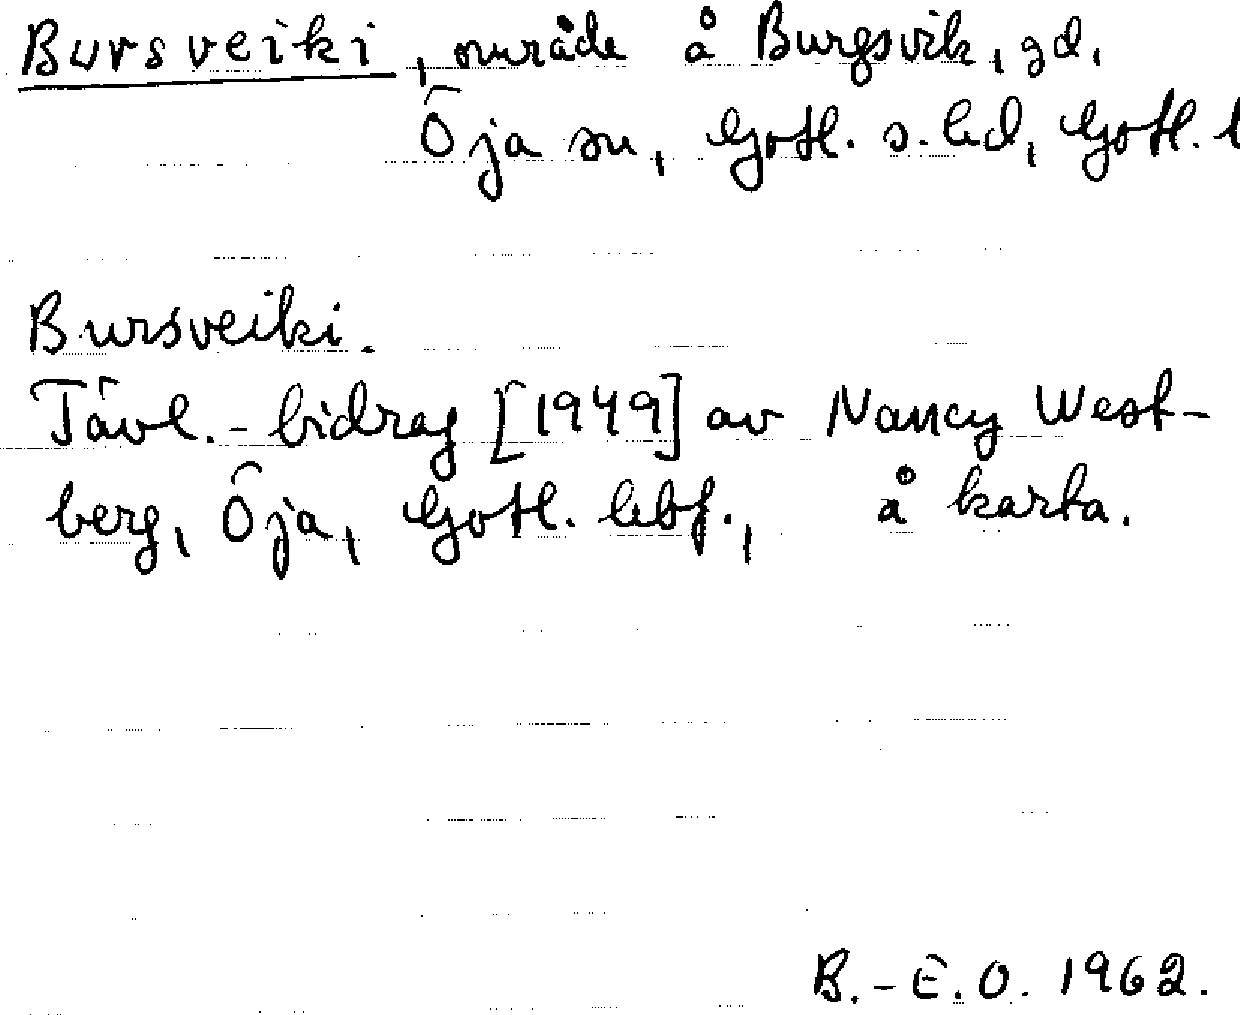 Bursveiki, område å Burgsvik, gd,
Öja sn, Gotl. s. hd, Gotl. l
Bursveiki.
Tävl.-bidrag [1949] av Nancy West-
berg, Öja, Gotl. hbf., å karta.
B.-E.O. 1962.